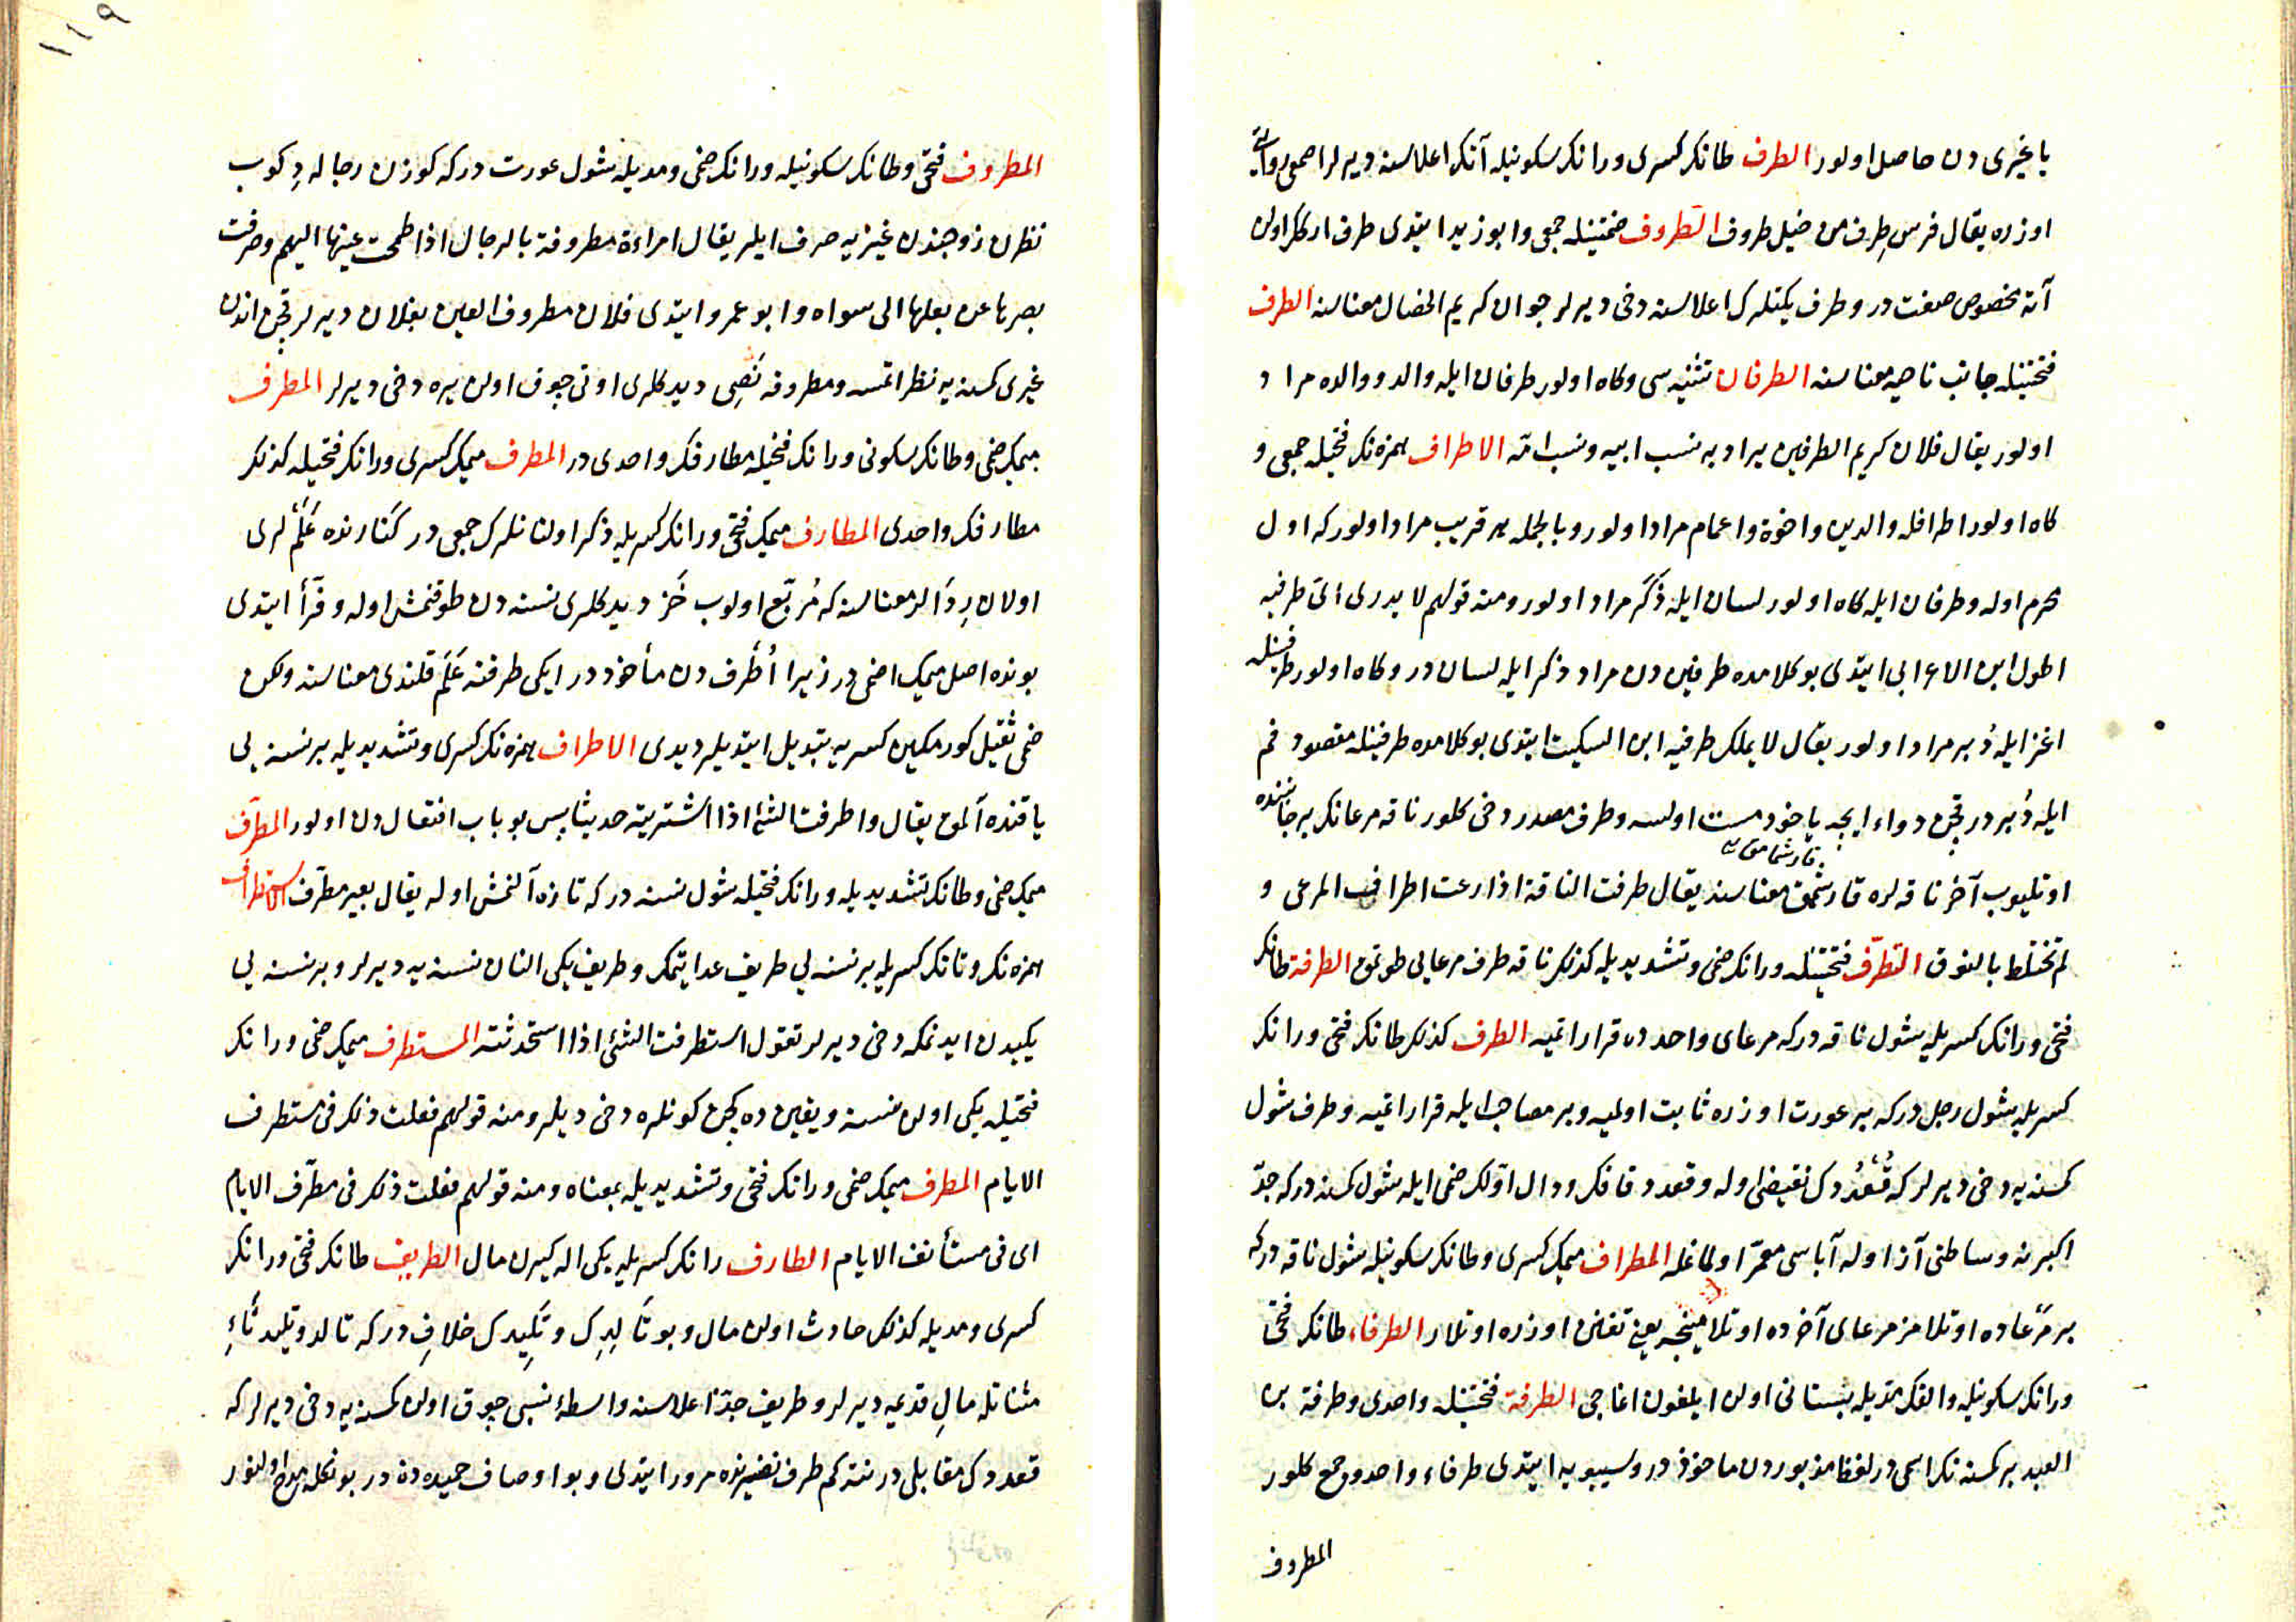 یا غیری دن حاصل اولور الطرف طانك كسری و رانك سكونیله آتك اعلاسنه دیرلر اصمعی روایتی
اوزره یقال فرس طرف من خیل طروف الطروف ضمتینله جمعی و ابو زید ایتدی طرف اركك اولن
آته مخصوص صفت در و طرف یكتلرك اعلاسنه دخی دیرلر جوان كریم الخصال معناسنه الطرف
فتحتینله جانب ناحیه معناسنه الطرفان تثنیه سی و كاه اولور طرفان ایله والد و والده مراد
اولور یقال فلان كریم الطرفین یراد به نسب ابیه و نسب امّه الاطراف همزه نك فتحیله جمعی و
كاه اولور اطرافله والدین و اخوة و اعمام مراد اولور و بالجمله هر قریب مراد اولور كه اول
محرم اوله و طرفان ایله كاه اولور لسان ایله ذَكَر مراد اولور و منه قولهم لا یدری ایّ طرفیه
اطول ابن الاعرابی ایتدی بو كلامده طرفین دن مراد ذكر ایله لسان در و كاه اولور طرفینله
اغز ایله دُبر مراد اولور یقال لا یملك طرفیه ابن السكیت ایتدی بو كلامده طرفینله مقصود فم
ایله دُبر در قچن دواء ایچه یا خود مست اولسه و طرف مصدر دخی كلور ناقه مرعانك بر جانبنده
اوتلیوب آخر ناقه لره قارشمق معناسنه یقال طرفت الناقة اذا رعت اطراف المرعی و
لم تختلط بالنوق التطرّف فتحتینله و رانك ضمی و تشدیدیله كذلك ناقه طرف مرعایی طوتمق الطرفة طانك
فتحی و رانك كسریله شول ناقه در كه مرعای واحدده قرار اتمیه الطرف كذلك طانك فتحی و رانك
كسریله شول رجل در كه بر عورت اوزره ثابت اولمیه و بر مصاحب ایله قرار اتمیه و طرف شول
كمسنه یه دخی دیرلر كه قُعْدُدك نقیضی اوله و قعدد قافك و دال اوّلك ضمی ایله شول كمسنه در كه جدّ
اكبرنه وساطتی آز اوله آباسی معمّر اولماغله المطراف میمك كسری و طانك سكونیله شول ناقه در كه
بر مرعاده اوتلامز مرعای آخرده اوتلامینجه یعنی تفنن اوزره اوتلار الطرفاء طانك فتحی
و رانك سكونیله و الفك مدّیله بستانی اولن ایلغون اغاجی الطرفة فتحتینله واحدی و طرفة بن
العبد بر كمسنه نك اسمی در لفظ مزبوردن ماخوذ در و سیبویه ایتدی طرفاء واحد و جمع كلور
المطروف
١١٩
المطروف فتحی و طانك سكونیله و رانك ضمی و مدیله شول عورت در كه كوزن رجاله دِكوب
نظرن زوجندن غیریه صرف ایلر یقال امراءة مطروفة بالرجال اذا طمحت عینها الیهم و صرفت
بصرها عن بعلها الی سواه و ابو عمرو ایتدی فلان مطروف العین بفلان دیرلر قچن اندن
غیری كمسنه یه نظر اتمسه و مطروفه نَصِی دیدكلری اوتی چوق اولن یره دخی دیرلر المطرف
میمك ضمی و طانك سكونی و رانك فتحیله مطارفك واحدی در المطرف میمك كسری و رانك فتحیله كذلك
مطارفك واحدی المطارف میمك فتحی و رانك كسریله ذكر اولنانلرك جمعی در كنارنده عَلَمْلری
اولان رِدَالر معناسنه كه مُربّع اولوب خَز دیدكلری نسنه دن طوقنمش اوله و فرّأ ایتدی
بونده اصل میمك ضمی در زیرا اُطْرِف دن مأخوذ در ایكی طرفنه عَلَم قلندی معناسنه ولكن
ضمی ثقیل كورمكین كسریه تبدیل ایتدیلر دیدی الاطراف همزه نك كسری و تشدیدیله بر نسنه یی
یاقنده آلمق یقال و اطرفت الشئ اذا اشتریته حدیثا پس بو باب افتعال دن اولور المطرّف
میمك ضمی و طانك تشدیدیله و رانك فتحیله شول نسنه در كه تازه آلنمش اوله یقال بعیر مطّرف الاستطراف
همزه نك و تانك كسریله بر نسنه یی طریف عد ایتمك و طریف یكی النان نسنه یه دیرلر و بر نسنه یی
یكیدن ایدنمكه دخی دیرلر تقول استطرفت الشئ اذا استحدثته المستطرف میمك ضمی و رانك
فتحیله یكی اولن نسنه و یقین ده كچن كونلره دخی دیلر و منه قولهم فعلت ذلك فی مستطرف
الایام المطرف میمك ضمی و رانك فتحی و تشدیدیله بمعناه و منه قولهم فعلت ذلك فی مطّرف الایام
ای فی مستأنف الایام الطارف رانك كسریله یكی اله كیرن مال الطریف طانك فتحی و رانك
كسری و مدیله كذلك حادث اولن مال و بو تَالِدِك و تَلِیدك خلافِ در كه تالد و تلید تاءِ
مثناتله مالِ قدیمه دیرلر و طریف جدّ اعلاسنه واسطهٔ نسبی چوق اولن كمسنه یه دخی دیرلر كه
قعددك مقابلی در نته كم طرف تفسیرنده مرور ایتدی و بو اوصاف حمیده دن در بونكله مدح اولنور